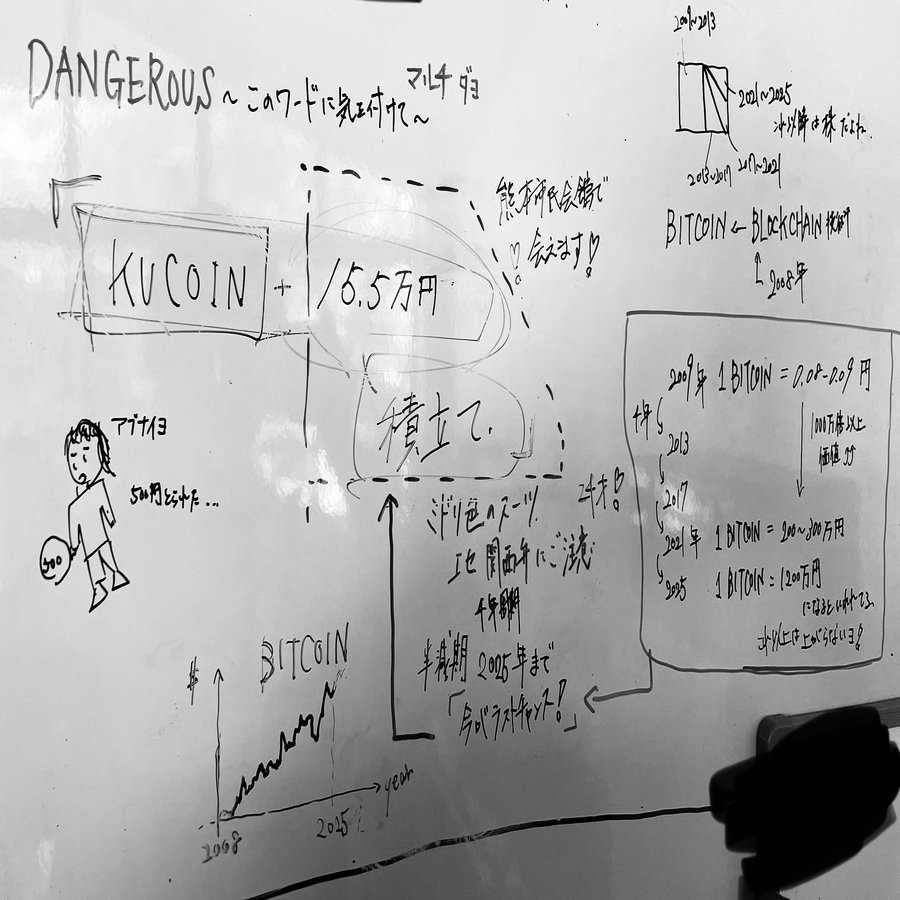 DANGEROUS ~このワードに気を付けて~
マルチ ダヨ
2009~2013
2021~2025
これ以降は株だよね
2013~2017
2017~2021
BITCOIN ← BLOCKCHAIN 技術
2008年
熊本市民会館で
♡会えます♡
KUCOIN + 15.5万円
積立て.
アブナイヨ
500円とられた...
500
ミドリ色のスーツ.
エセ関西弁にご注意
4年周期
半減期 2025年まで
「今がラストチャンス!」
2009年 1 BITCOIN = 0.08-0.09円
4年
1000万倍以上
価値
2013
2017
2021年 1 BITCOIN = 200~300万円
2025 1 BITCOIN = 1200万円
になるといわれてる
これ以上は上がらないヨ!
$ BITCOIN
year
2008
2025